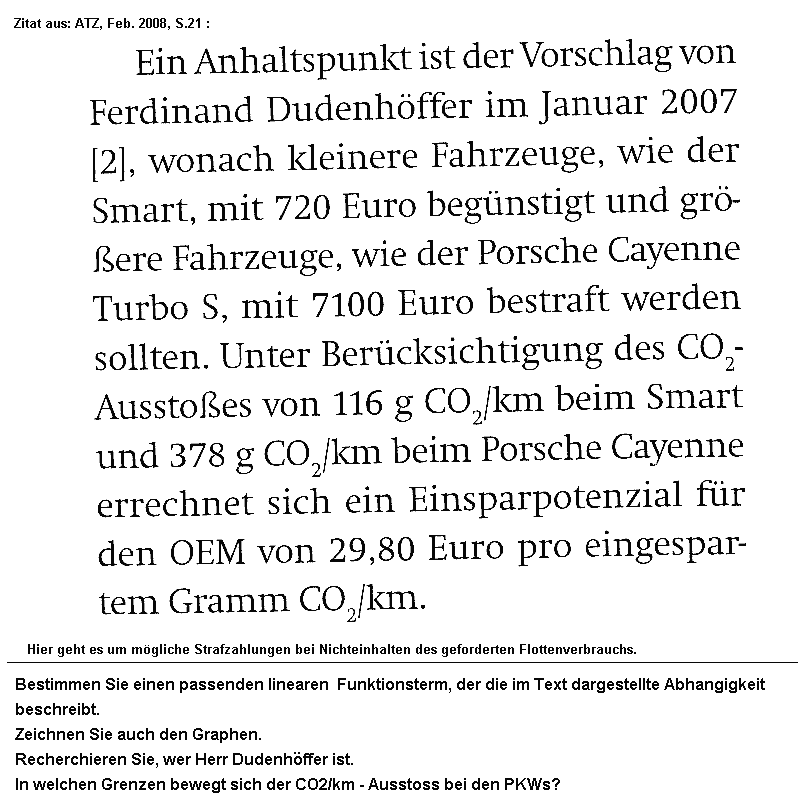 Zitat aus: ATZ, Feb. 2008, S.21 :
Ein Anhaltspunkt ist der Vorschlag von
Ferdinand Dudenhöffer im Januar 2007
[2], wonach kleinere Fahrzeuge, wie der
Smart, mit 720 Euro begünstigt und grö-
ßere Fahrzeuge, wie der Porsche Cayenne
Turbo S, mit 7100 Euro bestraft werden
sollten. Unter Berücksichtigung des CO₂-
Ausstoßes von 116 g CO₂/km beim Smart
und 378 g CO₂/km beim Porsche Cayenne
errechnet sich ein Einsparpotenzial für
den OEM von 29,80 Euro pro eingespar-
tem Gramm CO₂/km.
Hier geht es um mögliche Strafzahlungen bei Nichteinhalten des geforderten Flottenverbrauchs.
Bestimmen Sie einen passenden linearen Funktionsterm, der die im Text dargestellte Abhangigkeit
beschreibt.
Zeichnen Sie auch den Graphen.
Recherchieren Sie, wer Herr Dudenhöffer ist.
In welchen Grenzen bewegt sich der CO2/km - Ausstoss bei den PKWs?